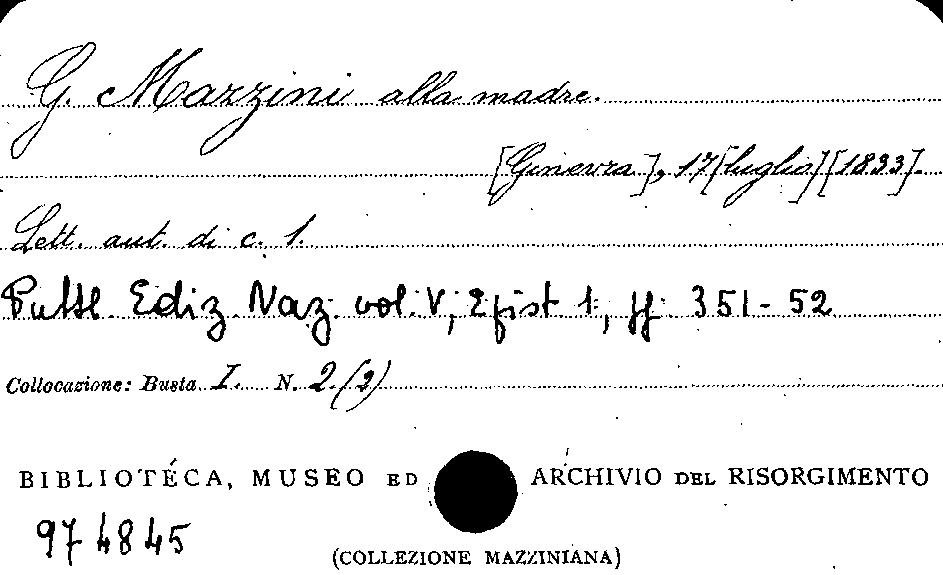 G. Mazzini alla madre.
[Ginevra], 17 [luglio] [1833].
Lett. aut. di c. 1.
Pubbl. Ediz. Naz. vol. V, Epist 1, pp. 351-52
Collocazione: Busta I. N. 2 (3)
BIBLIOTECA, MUSEO ED ARCHIVIO DEL RISORGIMENTO
974845
(COLLEZIONE MAZZINIANA)